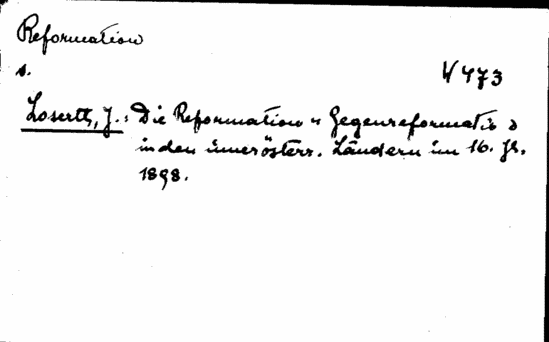 Reformation
s.
V 473
Loserth, J.: Die Reformation u Gegenreformatio
in den innerösterr. Ländern im 16. Jh.
1898.